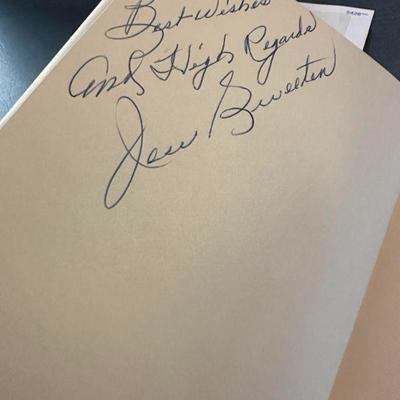 Best Wishes
And High Regards
Jess Sweeten